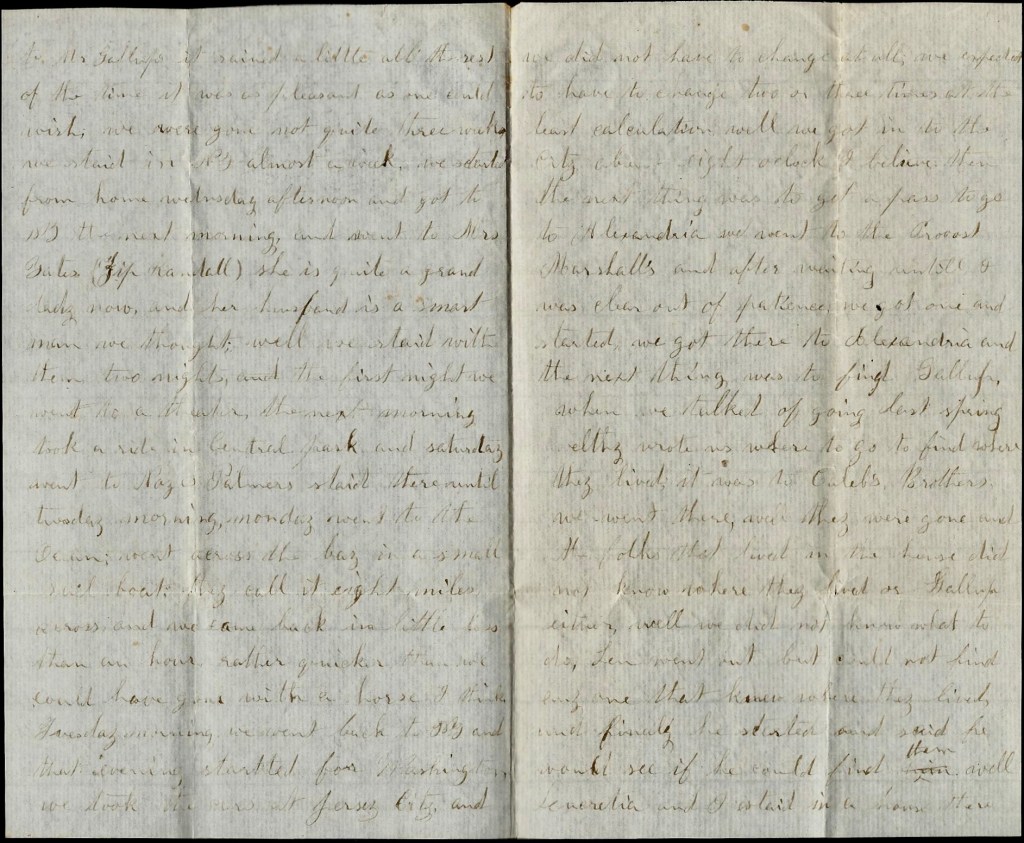 to Mr Gallups it rained a little all the rest
of the time it was as pleasant as one could
wish, we were gone not quite three weeks
we staid in NY almost a week, we started
from home wednsday afternoon and got to
NY the next morning, and went to Mrs
Bates (Zip Randall) she is quite a grand
lady now, and her husband is a smart
man we thought, well we staid with
them two nights, and the first night we
went to a theater, the next morning
took a ride in Central park and saturday
went to Palmers staid there until
tuesday morning, monday went to the
Ocean, went across the bay in a small
sail boat they call it eight miles
across and we came back in little less
than an hour rather quicker than we
could have gone with a horse I think
Tuesday morning we went back to NY and
that evening startted for Washington,
we took the cars at Jersey City, and
we did not have to change at all, we expected
to have to change two or three times at the
least calculation well we got in to the
City about eight oclock I belive then
the next thing was to get a pass to go
to Alexandria we went to the Provost
Marshall's and after waiting untill I
was clear out of patience we got one and
started, we got there to Alexandria and
the next thing was to find Gallup,
when we talked of going last spring
wrote us where to go to find where
they lived, it was to Caleb's Brothers.
we went there, well they were gone and
the folks that lived in the house did
not know where they lived or Gallup
either, well we did not know what to
do, Len went out but could not find
any one that knew where they lived
and finaly he started and said he
would see if he could find <s>him</s> them well
Lucretia and I staid in a house there